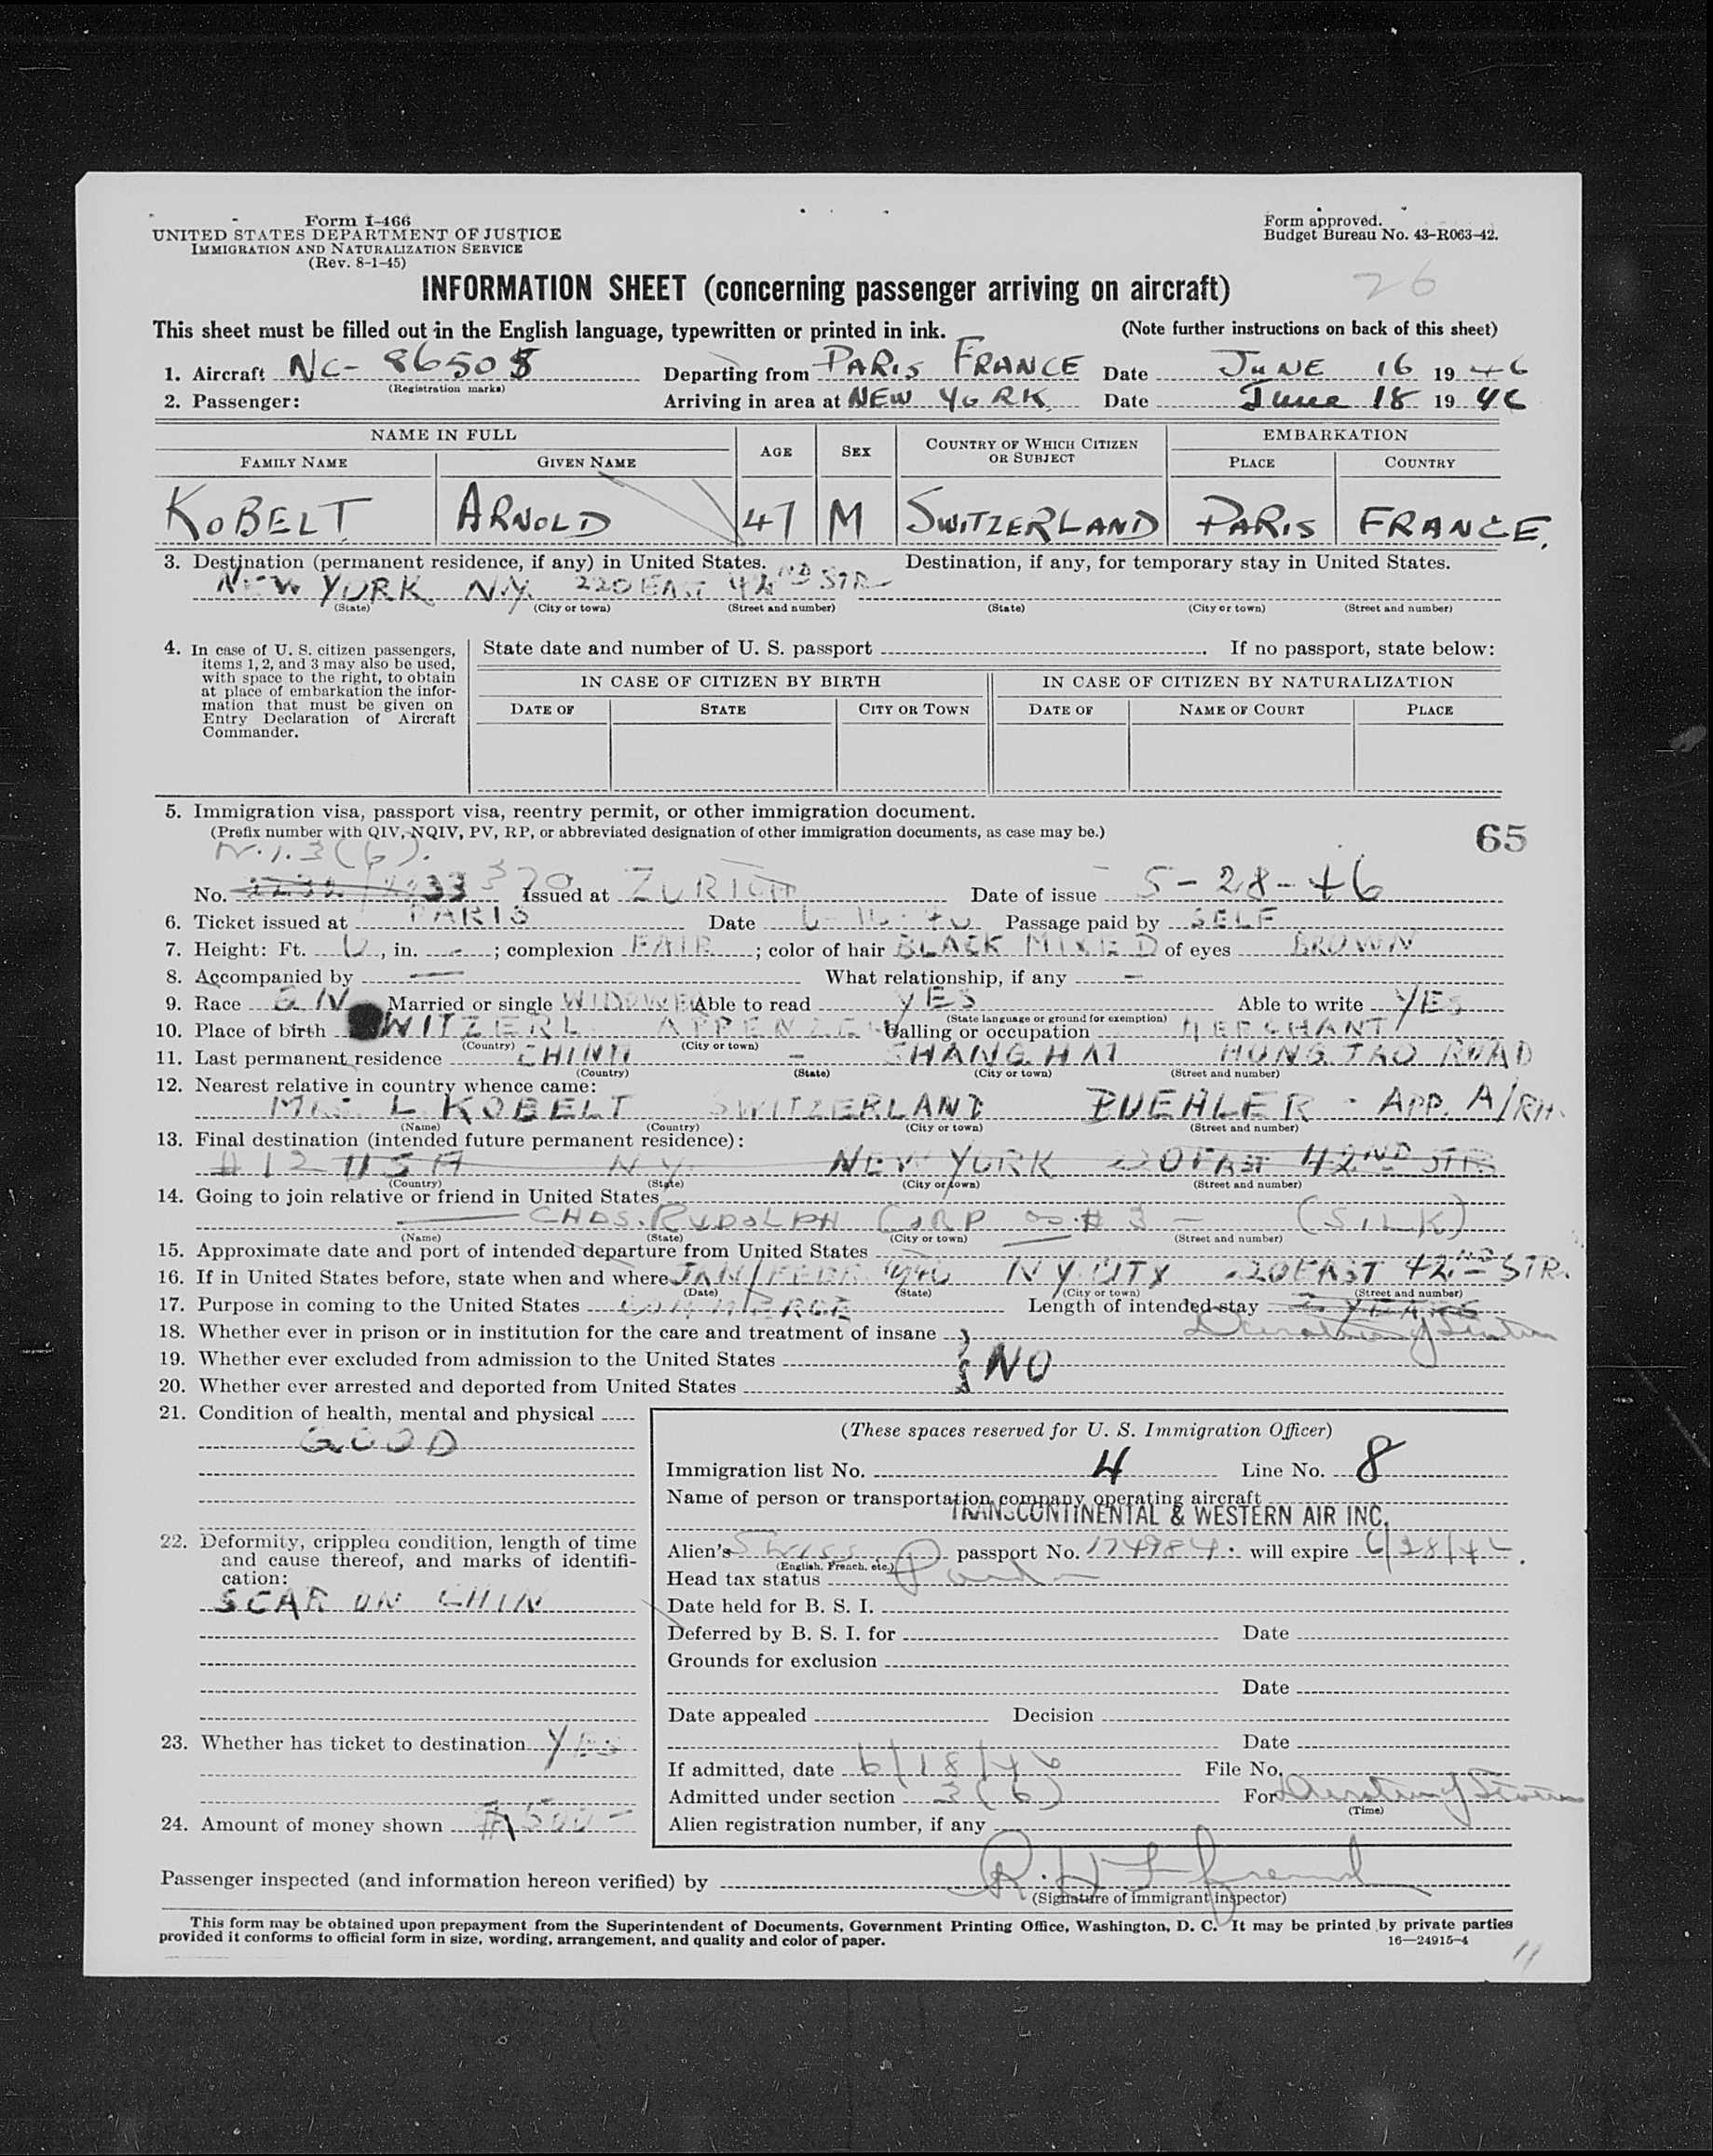 Form I-466
UNITED STATES DEPARTMENT OF JUSTICE
IMMIGRATION AND NATURALIZATION SERVICE
(Rev. 8-1-45)
Form approved.
Budget Bureau No. 43-R063-42.
26
INFORMATION SHEET (concerning passenger arriving on aircraft)
This sheet must be filled out in the English language, typewritten or printed in ink. (Note further instructions on back of this sheet)
1. Aircraft NC- 86505 Departing from PARIS FRANCE Date JUNE 16 19 46
(Registration marks)
2. Passenger: Arriving in area at NEW YORK Date June 18 19 46
NAME IN FULL AGE SEX COUNTRY OF WHICH CITIZEN OR SUBJECT EMBARKATION
FAMILY NAME GIVEN NAME PLACE COUNTRY
KOBELT ARNOLD 47 M SWITZERLAND PARIS FRANCE.
3. Destination (permanent residence, if any) in United States. Destination, if any, for temporary stay in United States.
NEW YORK N.Y. 220 EAST 42ND STR
(State) (City or town) (Street and number) (State) (City or town) (Street and number)
4. In case of U. S. citizen passengers, items 1, 2, and 3 may also be used, with space to the right, to obtain at place of embarkation the information that must be given on Entry Declaration of Aircraft Commander.
State date and number of U. S. passport If no passport, state below:
IN CASE OF CITIZEN BY BIRTH IN CASE OF CITIZEN BY NATURALIZATION
DATE OF STATE CITY OR TOWN DATE OF NAME OF COURT PLACE
5. Immigration visa, passport visa, reentry permit, or other immigration document.
(Prefix number with QIV, NQIV, PV, RP, or abbreviated designation of other immigration documents, as case may be.)
65
N.I. 3(6).
No. 370 Issued at ZURICH Date of issue 5-28-46
6. Ticket issued at PARIS Date Passage paid by SELF
7. Height: Ft. 6, in. -; complexion FAIR; color of hair BLACK MIXED of eyes BROWN
8. Accompanied by — What relationship, if any —
9. Race Married or single WIDOWER Able to read YES Able to write YES
(State language or ground for exemption)
10. Place of birth SWITZERL. APPENZELL Calling or occupation MERCHANT
(Country) (City or town)
11. Last permanent residence CHINA - SHANGHAI HUNGJAO ROAD
(Country) (State) (City or town) (Street and number)
12. Nearest relative in country whence came:
MRS L. KOBELT SWITZERLAND BUEHLER - APP. A/RH.
(Name) (Country) (City or town) (Street and number)
13. Final destination (intended future permanent residence):
#12 USA N.Y. NEW YORK 220 EAST 42ND STR
(Country) (State) (City or town) (Street and number)
14. Going to join relative or friend in United States
— CHAS. RUDOLPH CORP #3 - (SILK)
(Name) (State) (City or town) (Street and number)
15. Approximate date and port of intended departure from United States
16. If in United States before, state when and where JAN/FEBR 1940 N Y CITY 220 EAST 42ND STR.
(Date) (State) (City or town) (Street and number)
17. Purpose in coming to the United States COMMERCE Length of intended stay 2 YEARS
Duration of Status
18. Whether ever in prison or in institution for the care and treatment of insane
19. Whether ever excluded from admission to the United States NO
20. Whether ever arrested and deported from United States
21. Condition of health, mental and physical
GOOD
22. Deformity, crippled condition, length of time and cause thereof, and marks of identification:
SCAR ON CHIN
23. Whether has ticket to destination YES
24. Amount of money shown $500-
(These spaces reserved for U. S. Immigration Officer)
Immigration list No. 4 Line No. 8
Name of person or transportation company operating aircraft
TRANSCONTINENTAL & WESTERN AIR INC.
Alien's Swiss passport No. 174984. will expire
(English, French, etc.)
Head tax status Paid
Date held for B. S. I.
Deferred by B. S. I. for Date
Grounds for exclusion
Date
Date appealed Decision
Date
If admitted, date 6/18/46 File No.
Admitted under section 3(6) For Duration of Status
(Time)
Alien registration number, if any
Passenger inspected (and information hereon verified) by
(Signature of immigrant inspector)
This form may be obtained upon prepayment from the Superintendent of Documents, Government Printing Office, Washington, D. C. It may be printed by private parties
provided it conforms to official form in size, wording, arrangement, and quality and color of paper. 16—24915-4
11